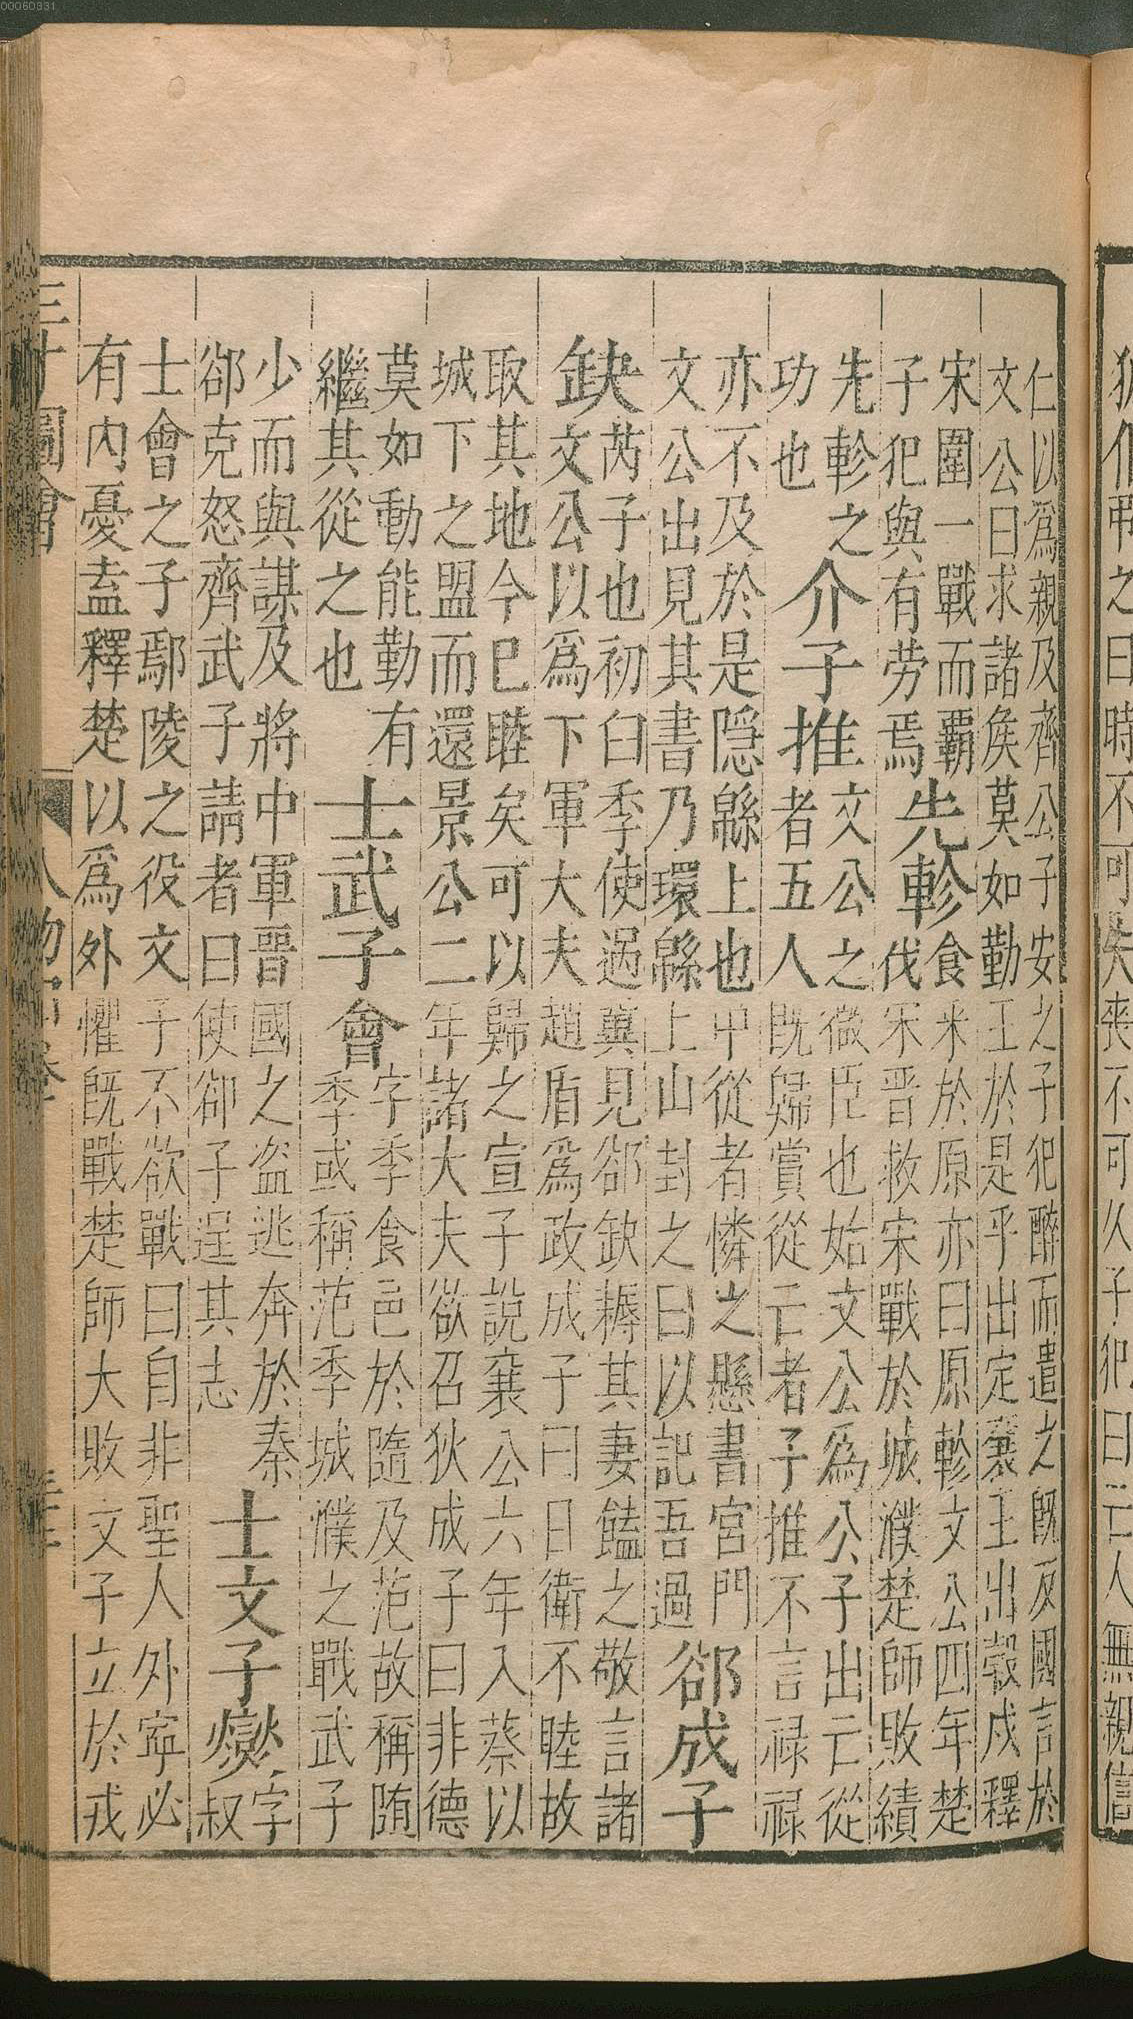 狐偃
之曰時不可失喪不可久子犯曰亡人無親信
仁以爲親及齊公子安之子犯醉而遣之既反國言於
文公曰求諸矦莫如勤王於是乎出定襄王出穀戍釋
宋圍一戰而霸
子犯與有劳焉
先軫
食釆於原亦曰原軫文公四年楚
伐宋晉救宋戰於城濮楚師敗績
先軫之
功也
介子推
文公之微臣也始文公爲公子出亡從
者五人既歸賞從亡者子推不言禄禄
亦不及於是隠緜上也甲從者憐之懸書宮門
文公出見其書乃環緜上山封之曰以記吾過
郤成子
缺
芮子也初臼季使過冀見郤缺耨其妻饁之敬言諸
文公以爲下軍大夫趙盾爲政成子曰日衛不睦故
取其地今已睦矣可以歸之宣子說襄公六年入蔡以
城下之盟而還景公二年諸大夫欲召狄成子曰非德
莫如動能勤有
繼其從之也
士武子會
字季食邑於隨及范故稱随
季或稱范季城濮之戰武子
少而與謀及將中軍晉國之盗逃奔於秦
郤克怒齊武子請者曰使郤子逞其志
士文子燮
字
叔
士會之子鄢陵之役文子不欲戰曰自非聖人外寧必
有內憂盍釋楚以爲外懼既戰楚師大敗文子立於戎
三才圖會
人物四卷
00060331